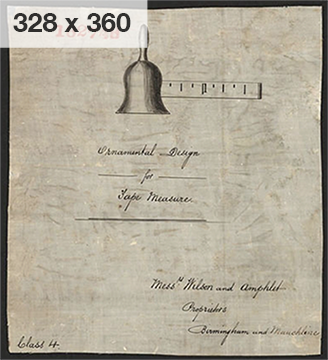 328 x 360
Ornamental Design
for
Tape Measure
Mess.rs Wilson and Amphlet
Proprietors
Birmingham and Manchester
Class 4.